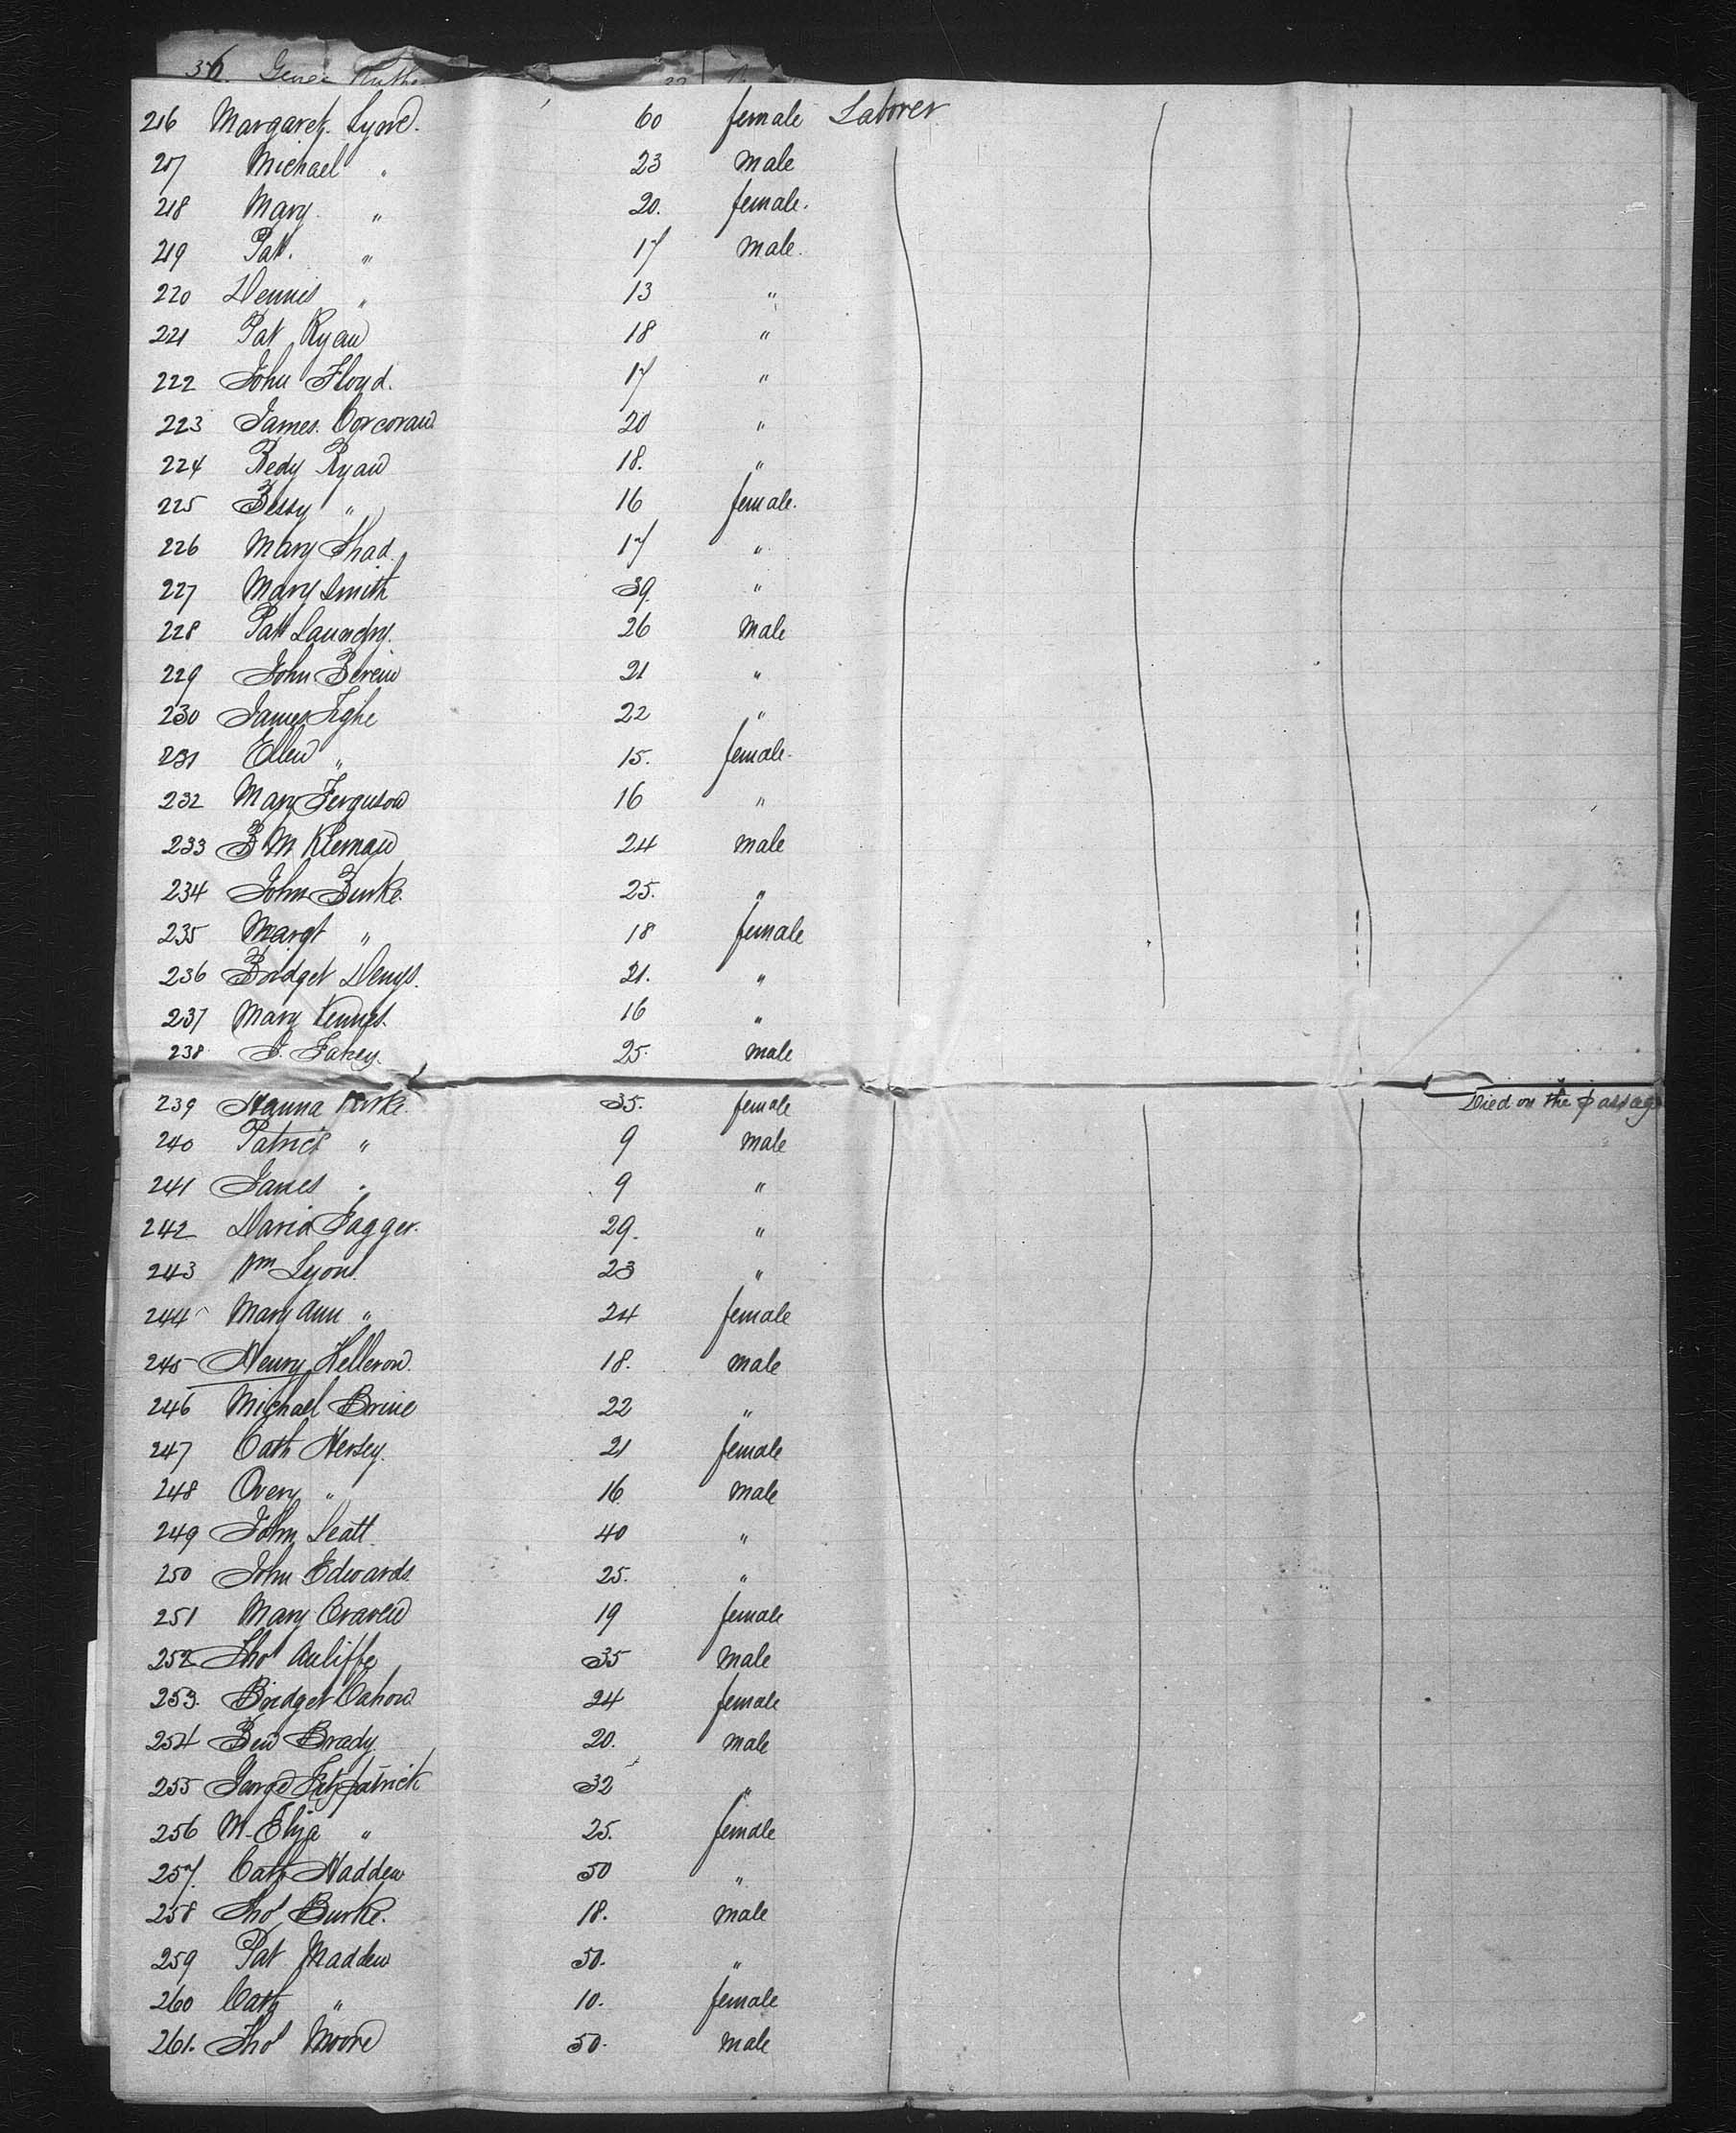 36. George
216 Margaret Lyne. 60 female Laborer
217 Michael " 23 male
218 Mary " 20. female.
219 Patt. " 17 male.
220 Dennis " 13 "
221 Pat Ryan 18 "
222 John Floyd. 17 "
223 James. Corcoran 20 "
224 Redy Ryan 18. "
225 Bessy " 16 female.
226 Mary Shad. 17 "
227 Mary Smith 39. "
228 Patt Laundry. 26 male
229 John 21 "
230 James Tighe 22 "
231 Ellen " 15. female.
232 Mary Ferguson 16 "
233 B M Kiernan 24 male
234 John Burke. 25. "
235 Margt " 18 female
236 Bridget Denys. 21. "
237 Mary 16 "
238 J. Fahey. 25. male
239 Hanna Burke. 35. female Died on the passage
240 Patrick " 9 male
241 James " 9 "
242 David Jagger. 29. "
243 Wm Lyons. 23 "
244 Mary Ann " 24 female
245 Henry Helleron. 18. male
246 Michael Brine 22 "
247 Cath Hersey. 21 female
248 Overy " 16 male
249 John Leatt. 40 "
250 John Edwards. 25. "
251 Mary Craven 19 female
252 Thos Auliffe 35 male
253. Bridget Cahow 24 female
254 Ben Brady 20. male
255 George Fitzpatrick 32 "
256 M. Eliza " 25. female
257. Cath Hadden 50 "
258 Thos Burke. 18. male
259 Pat Madden 50. "
260 Cath " 10. female
261. Thos Moore 50. male